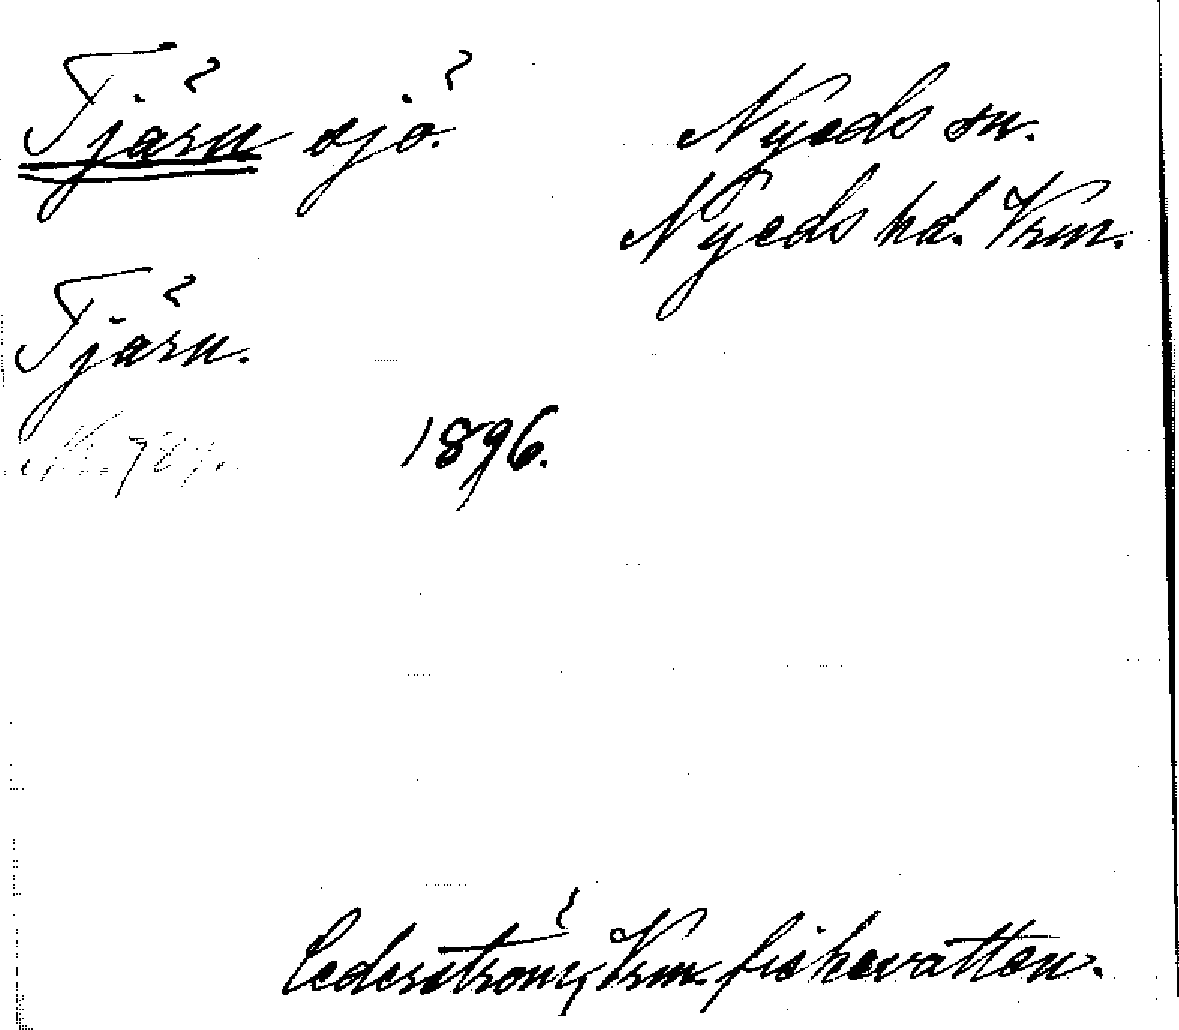 Tjärn sjö. Nyeds sn.
Nyeds hd. Vrm.
Tjärn.
1896.
Cederström, Vrm. fiskevatten.